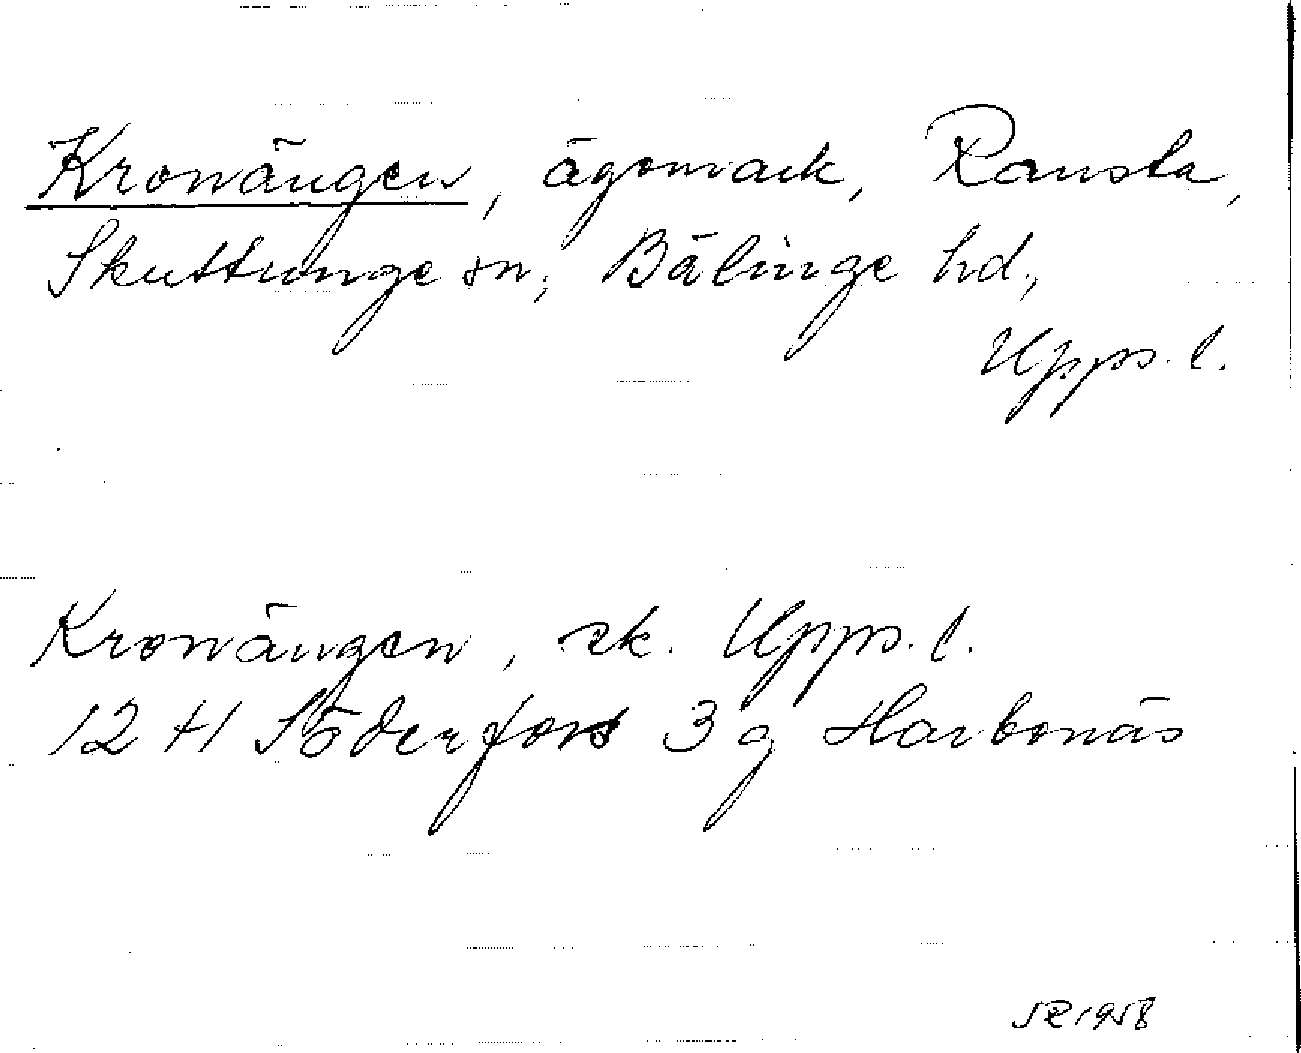 Kronängen, ägomark, Ransta,
Skuttunge sn, Bälinge hd,
Upps. l.
Kronängen, ek. Upps. l.
12 H Söderfors 3 g Harbonäs
1958